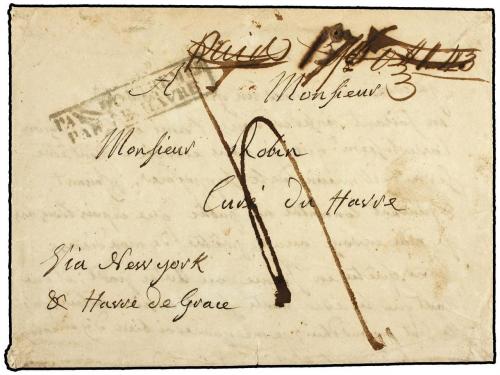 A Monsieur
PAYS D'OUTREMER
PAR LE HAVRE
Monsieur Robin
Curé du Havre
Via New york
& Havre de Grace